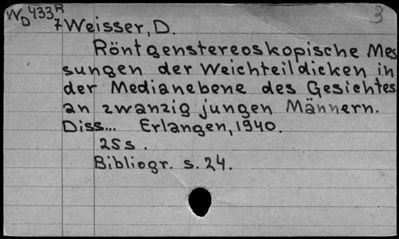 WD433R 3
7 Weisser, D.
Röntgenstereoskopische Mes
sungen der Weichteildicken in
der Medianebene des Gesichtes
an zwanzig jungen Männern.
Diss... Erlangen, 1940.
25s.
Bibliogr. s. 24.